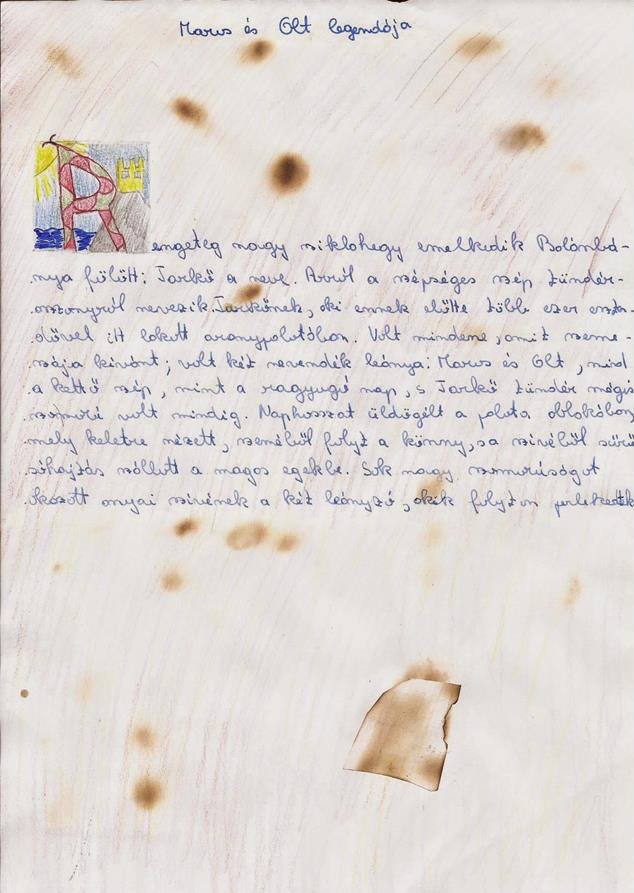 Maros és Olt legendája
Rengeteg nagy sziklahegy emelkedik Balánbá-
nya fölött: Tarkő a neve. Arról a szépséges szép tündér-
asszonyról nevezik Tarkőnek, aki ennek előtte több ezer eszten-
dővel itt lakott aranypalotában. Volt mindene, amit szeme-
szája kívánt; volt két nevendék leánya: Maros és Olt, mind
a kettő szép, mint a ragyogó nap, s Tarkő tündér mégis
szomorú volt mindig. Naphosszat üldögélt a palota ablakában,
mely keletre nézett, szeméből folyt a könny, s a szívéből sűrű
sóhajtás szállott a magos egekbe. Sok nagy szomorúságot
okozott anyai szívének a két leányzó, akik folyton perlekedtek